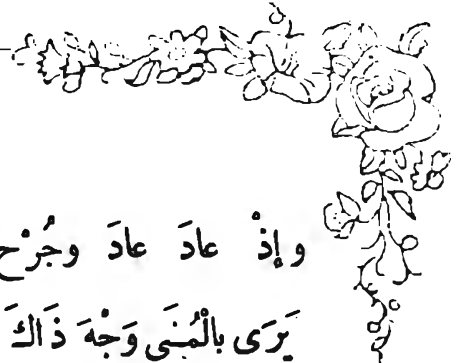 وإذْ عادَ عادَ وجُرْح
يَرَى بالْمُنَى وَجْهَ ذَاكَ